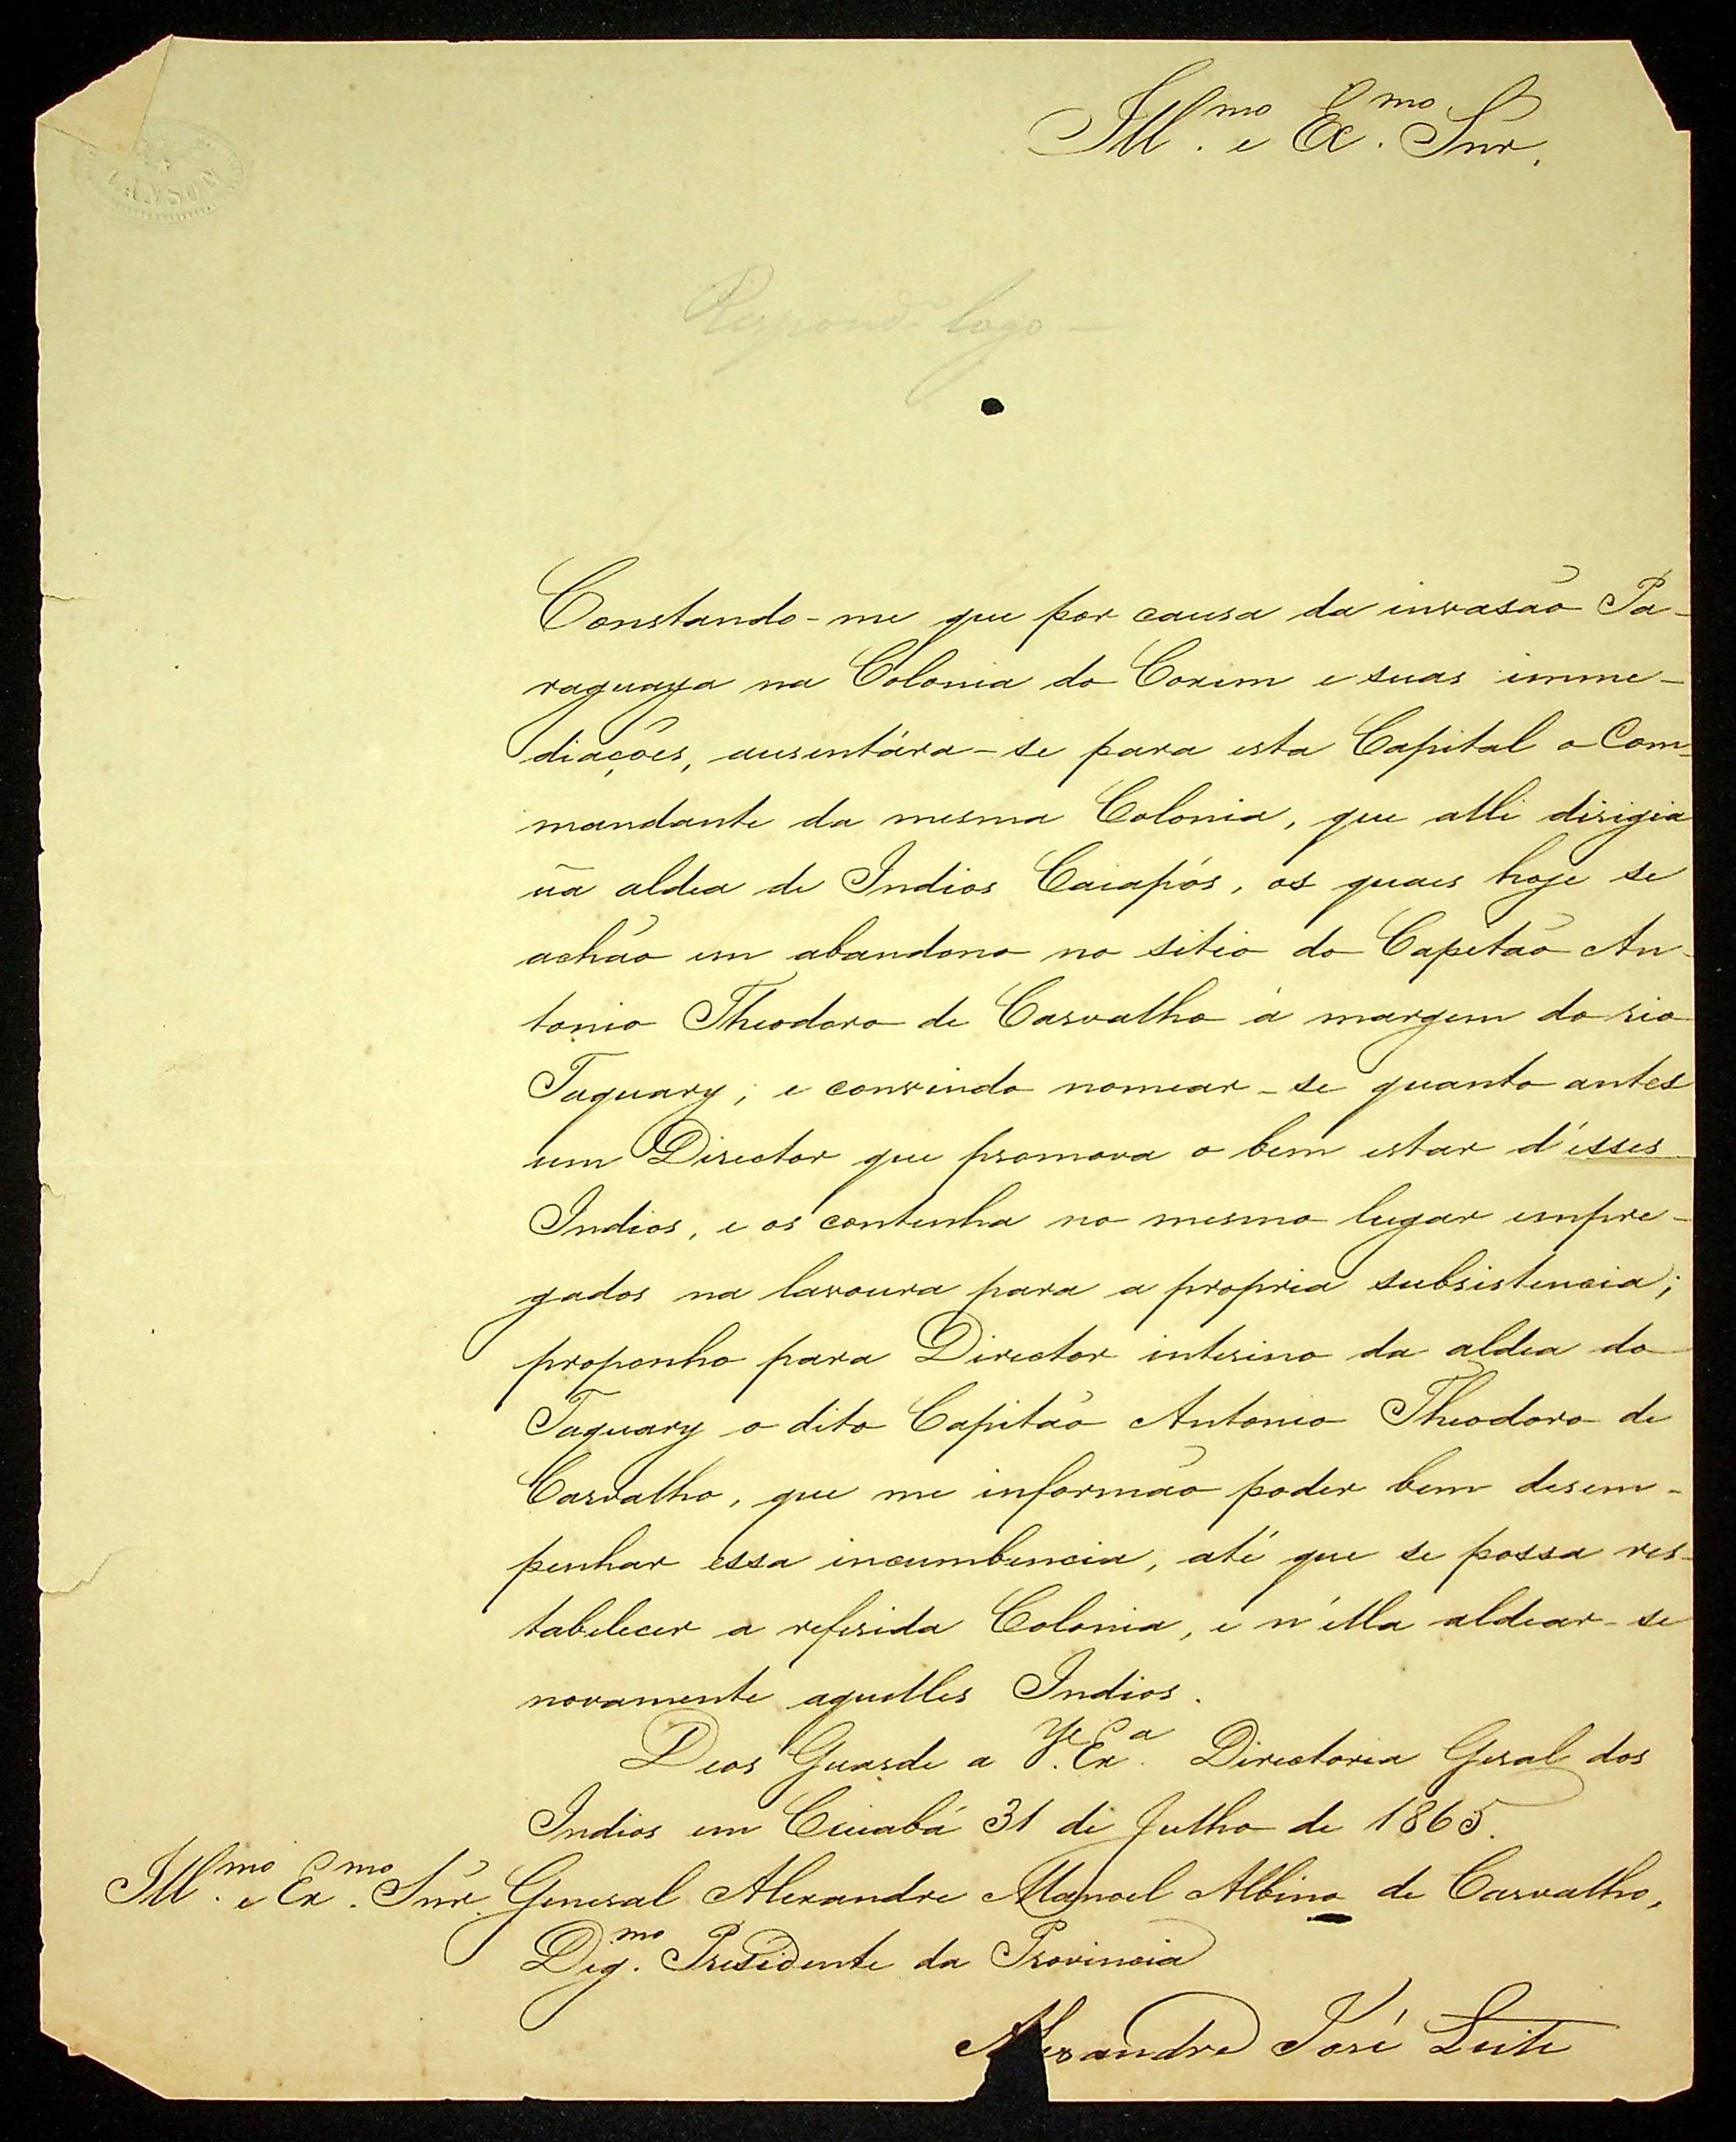 Ill.mo e Ex.mo Snr.
Respond.o logo —
Constando-me que por causa da invasão Pa-
raguaya na Colonia do Coxim e suas imme-
diações, ausentára-se para esta Capital o Com-
mandante da mesma Colonia, que alli dirigia
ũa aldea de Indios Caiapós, os quaes hoje se
achão em abandono no sitio do Capitão An-
tonio Theodoro de Carvalho á margem do rio
Taquary; e convindo nomear-se quanto antes
um Director que promova o bem estar d'esses
Indios, e os contenha no mesmo lugar empre-
gados na lavoura para a propria subsistencia;
proponho para Director interino da aldea do
Taquary o dito Capitão Antonio Theodoro de
Carvalho, que me informão poder bem desem-
penhar essa incumbencia, até que se possa res-
tabelecer a referida Colonia, e n'ella aldear-se
novamente aquelles Indios.
Deos Guarde a V. Ex.a Directoria Geral dos
Indios em Cuiabá 31 de Julho de 1865.
Ill.mo e Ex.mo Snr. General Alexandre Manoel Albino de Carvalho,
Dig.mo Presidente da Provincia
Alexandre José Leite